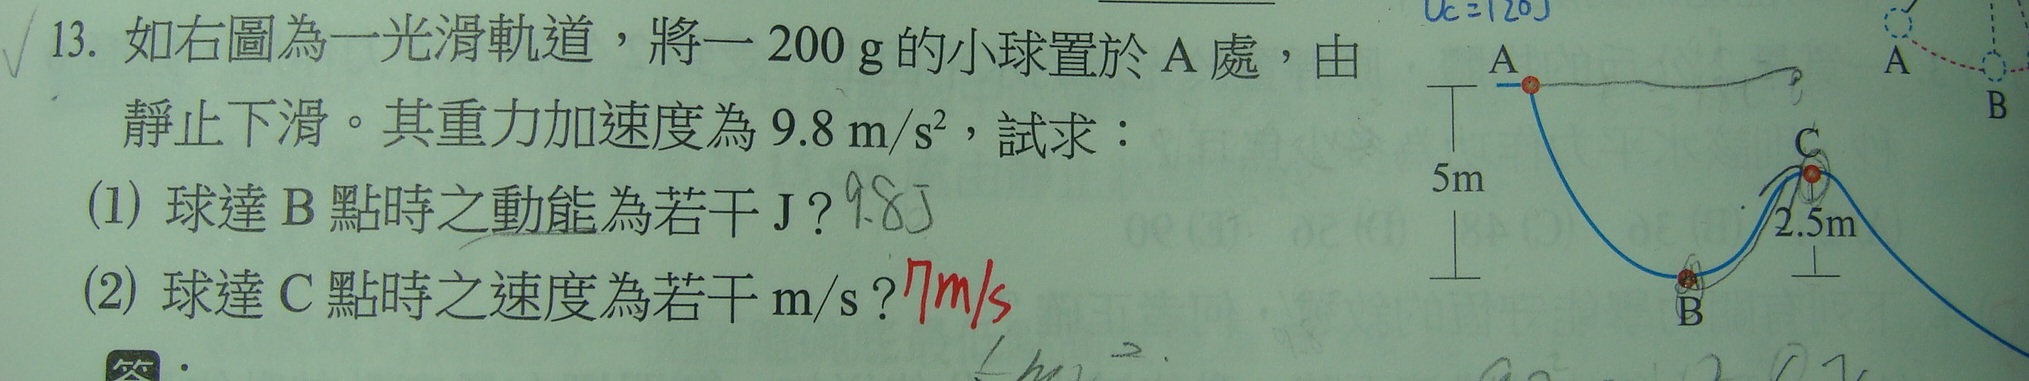 Uc=120J
13. 如右圖為一光滑軌道，將一 200 g 的小球置於 A 處，由
靜止下滑。其重力加速度為 9.8 m/s²，試求：
(1) 球達 B 點時之動能為若干 J？9.8J
(2) 球達 C 點時之速度為若干 m/s？7m/s
答：
A
5m
C
2.5m
B
A
B